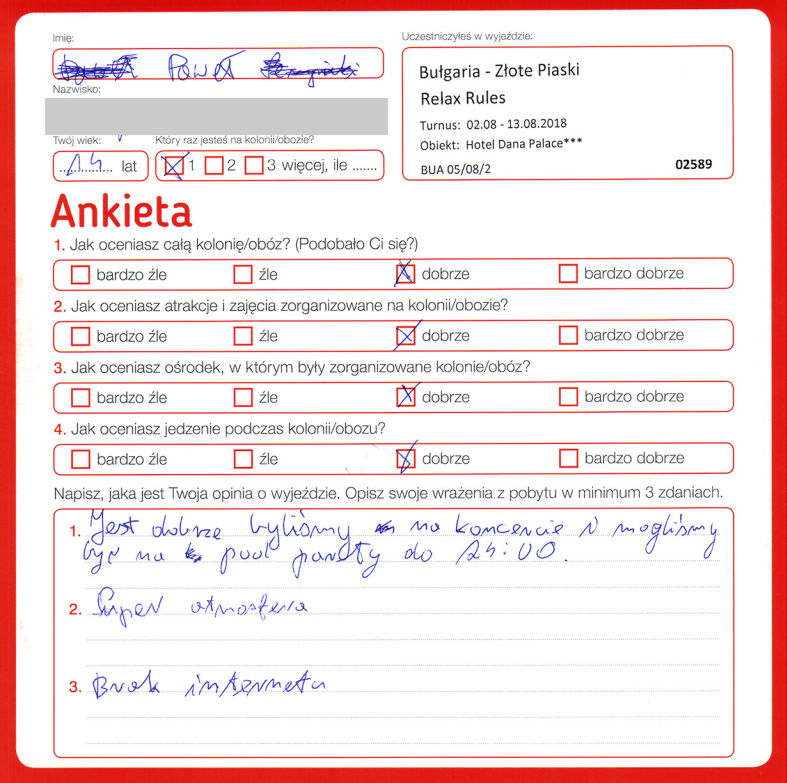 Imię:
Paweł
Nazwisko:
Twój wiek:
Który raz jesteś na kolonii/obozie?
14 lat
1 2 3 więcej, ile .......
Uczestniczyłeś w wyjeździe:
Bułgaria - Złote Piaski
Relax Rules
Turnus: 02.08 - 13.08.2018
Obiekt: Hotel Dana Palace***
BUA 05/08/2 02589
Ankieta
1. Jak oceniasz całą kolonię/obóz? (Podobało Ci się?)
bardzo źle źle dobrze bardzo dobrze
2. Jak oceniasz atrakcje i zajęcia zorganizowane na kolonii/obozie?
bardzo źle źle dobrze bardzo dobrze
3. Jak oceniasz ośrodek, w którym były zorganizowane kolonie/obóz?
bardzo źle źle dobrze bardzo dobrze
4. Jak oceniasz jedzenie podczas kolonii/obozu?
bardzo źle źle dobrze bardzo dobrze
Napisz, jaka jest Twoja opinia o wyjeździe. Opisz swoje wrażenia z pobytu w minimum 3 zdaniach.
1. Jest dobrze byliśmy na koncercie i mogliśmy
być na pool party do 24:00.
2. Super atmosfera
3. Brak internetu